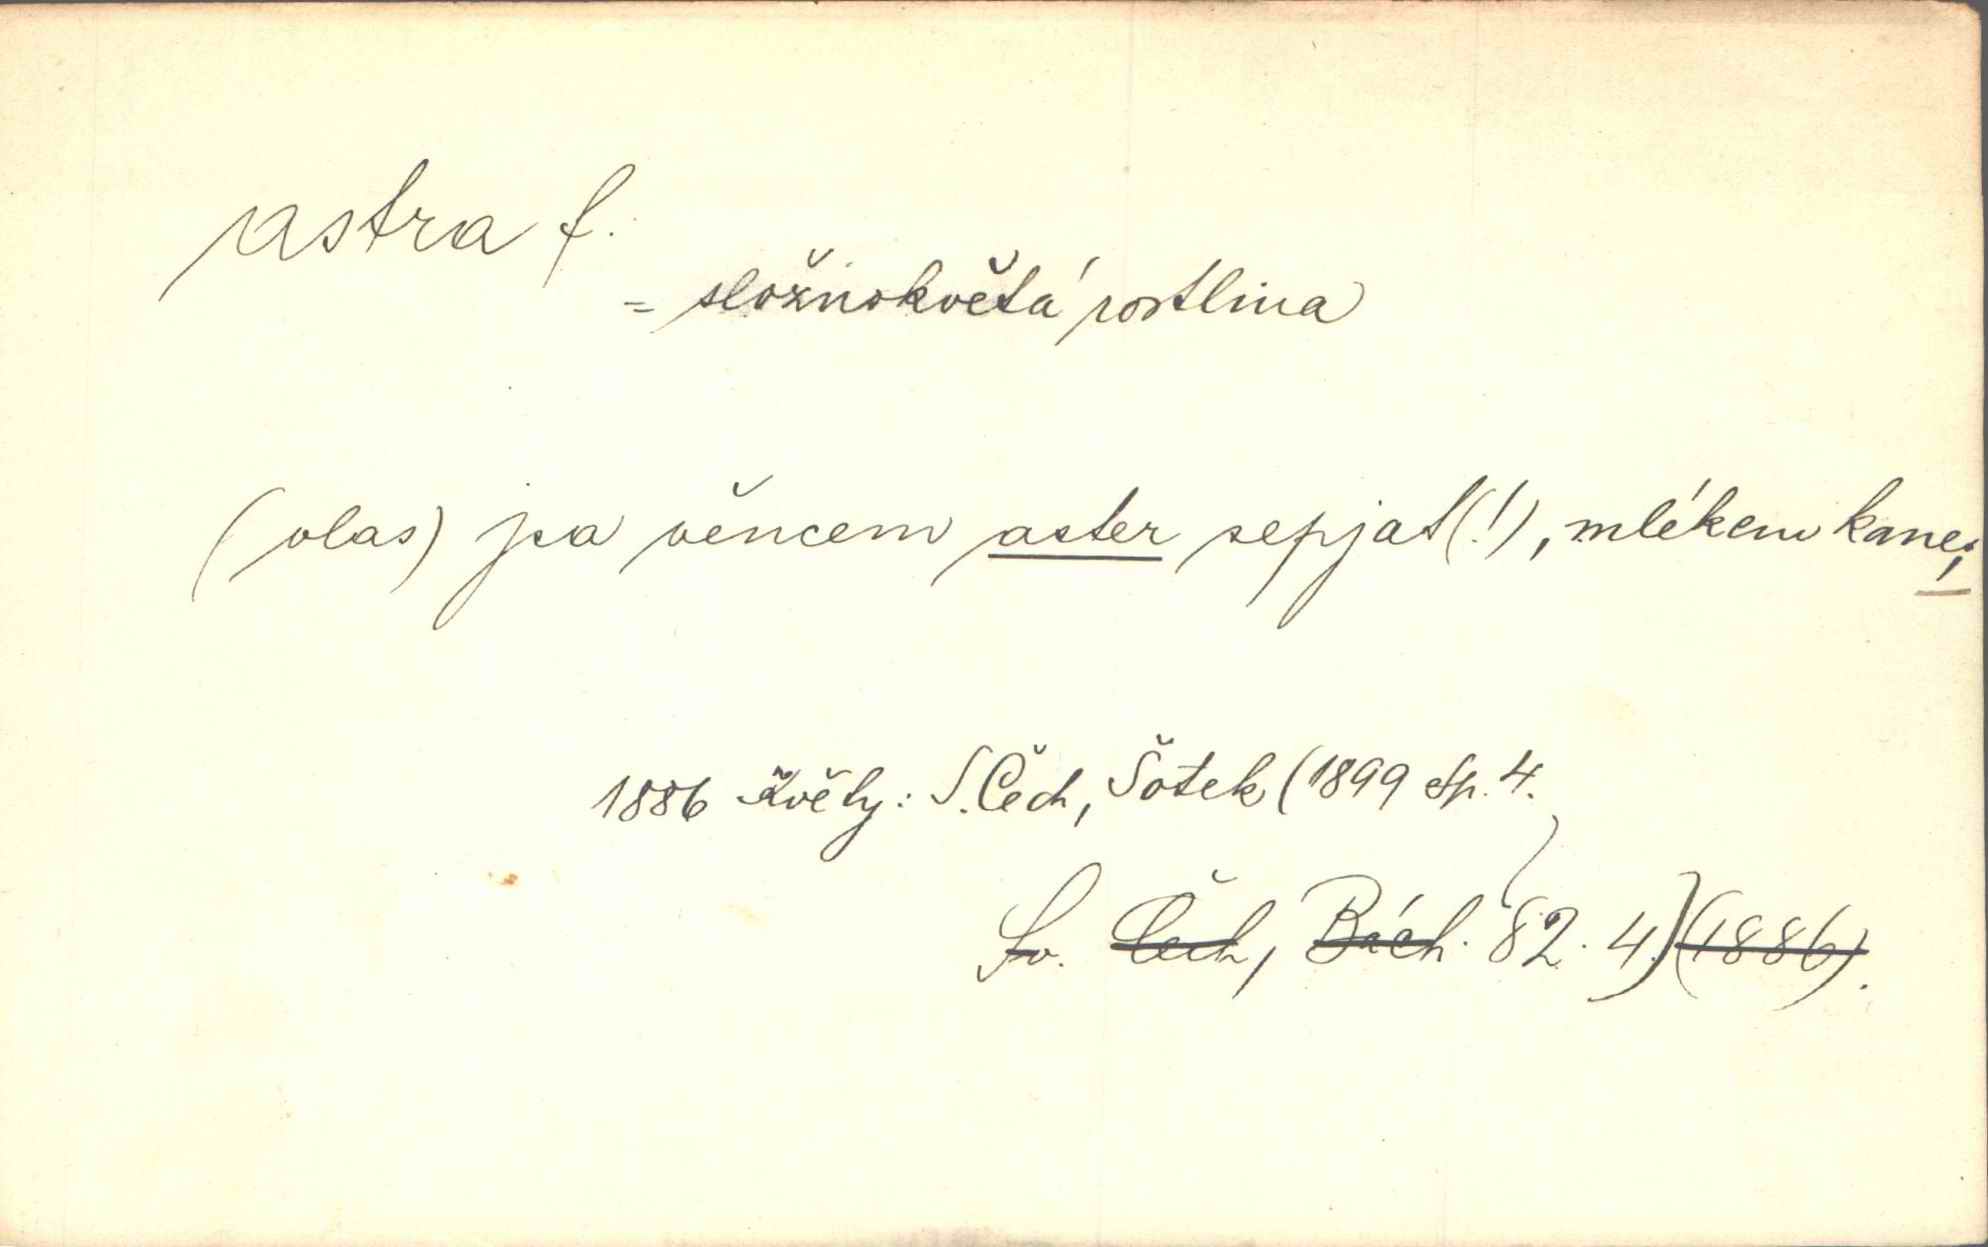 astra f.
= složnokvětá rostlina
(vlas) jsa věncem aster sepjat(!), mlékem kane;
1886 Květy: S. Čech, Šotek (1899 sp. 4.
Sv. Čech, Bách. 82. 4.) (1886).